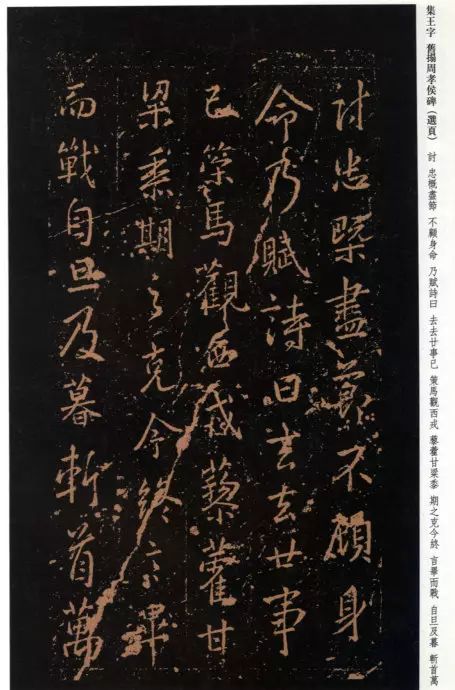 集王字 舊搨周孝侯碑（選頁） 討 忠概盡節 不顧身命 乃賦詩曰 去去廿事已 策馬觀西戎 藜藿甘梁黍 期之克今終 言畢而戰 自旦及暮 斬首萬
討忠槩盡節不顧身
命乃賦詩曰去去廿事
已策馬觀西戎藜藿甘
梁黍期之克令終言畢
而戰自旦及暮斬首萬